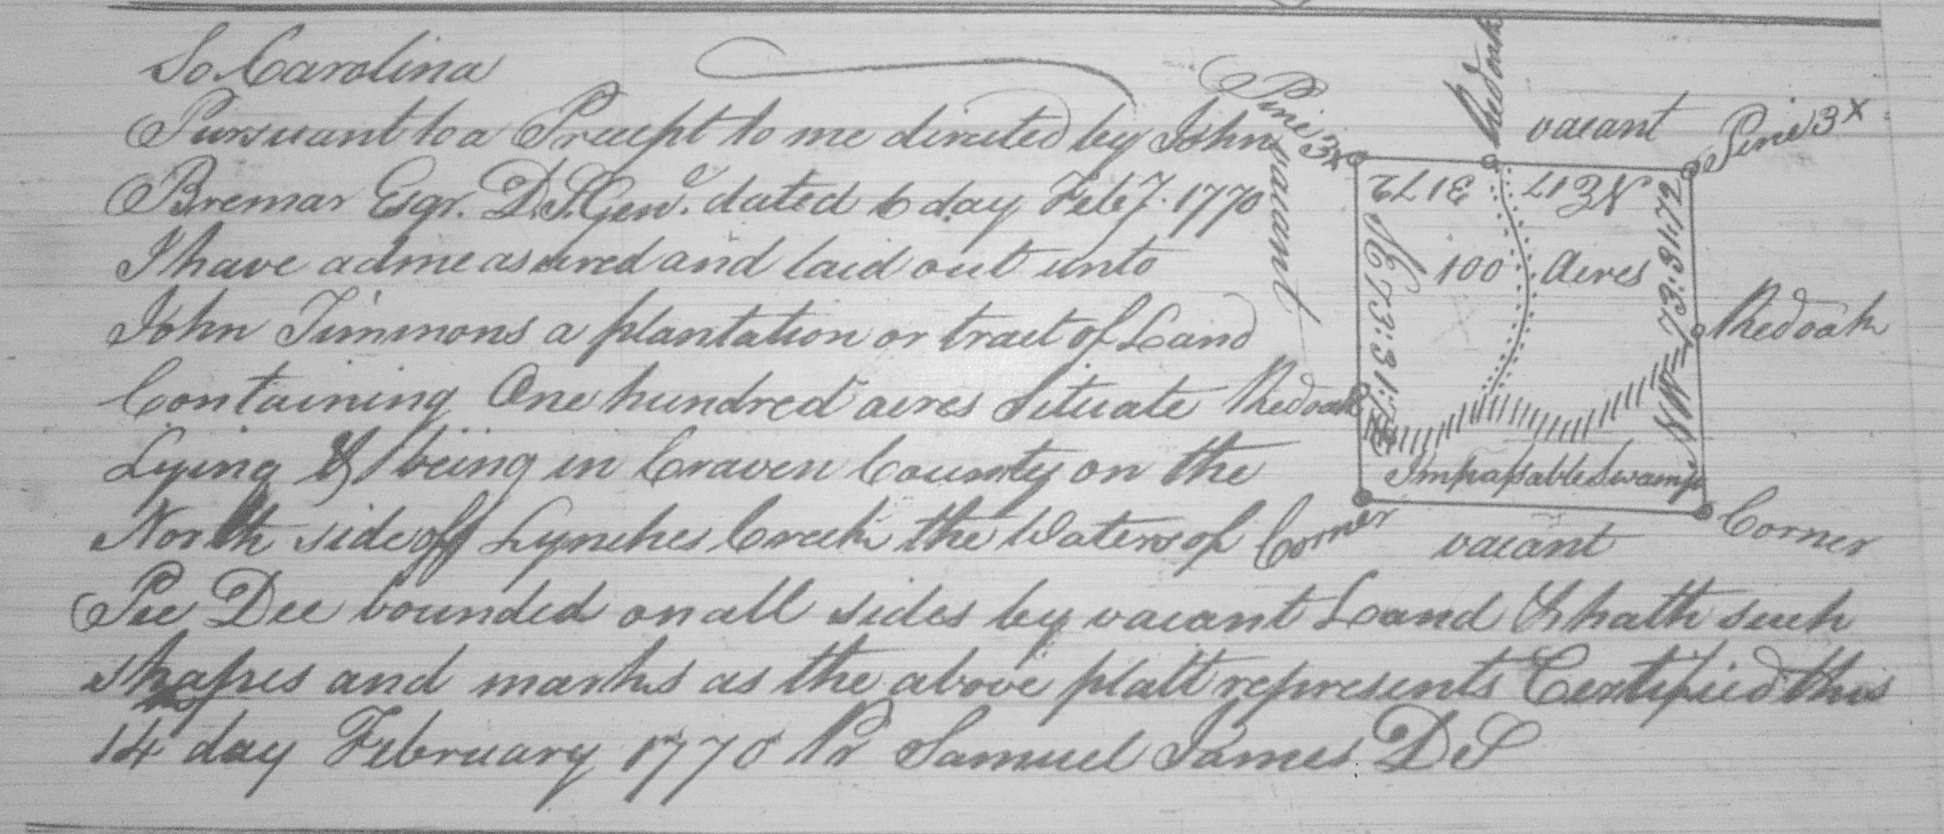 So. Carolina
Pursuant to a Precept to me directed by John
Bremar Esqr. D. S. Genl. dated 6 day Feby. 1770
I have admeasured and laid out unto
John Timmons a plantation or tract of Land
Containing One hundred acres Situate
Lying & being in Craven County on the
North side of Lynches Creek the Waters of
Pee Dee bounded on all sides by vacant Land & hath such
shapes and marks as the above platt represents Certified this
14 day February 1770 Pr Samuel James D S
Pine 3x
Redoak
vacant
Pine 3x
vacant
NE 17
31 72
100 Acres
73:31:72
NW 73:31:72
Redoak
Redoak
Impassable Swamp
Corner
vacant
Corner